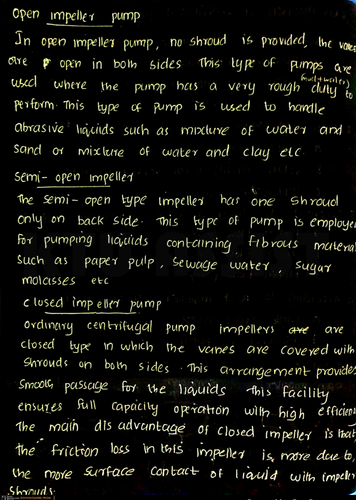 Open impeller pump
In open impeller pump, no shroud is provided, the vanes
are open in both sides This type of pumps are
used where the pump has a very rough duty to
perform. This type of pump is used to handle
abrasive liquids such as mixture of water and
sand or mixture of water and clay etc.
Semi-open impeller
The semi-open type impeller has one shroud
only on back side. This type of pump is employe
for pumping liquids containing fibrous materia
such as paper pulp, sewage water, sugar
molasses etc
closed impeller pump
ordinary centrifugal pump impellers are are
closed type in which the vanes are covered with
shrouds on both sides. This arrangement provides
smooth passage for the liquids This facility
ensures full capacity operation with high efficien
The main disadvantage of closed impeller is that
the friction loss in this impeller is more due to
the more surface contact of liquid with impeller
shrouds